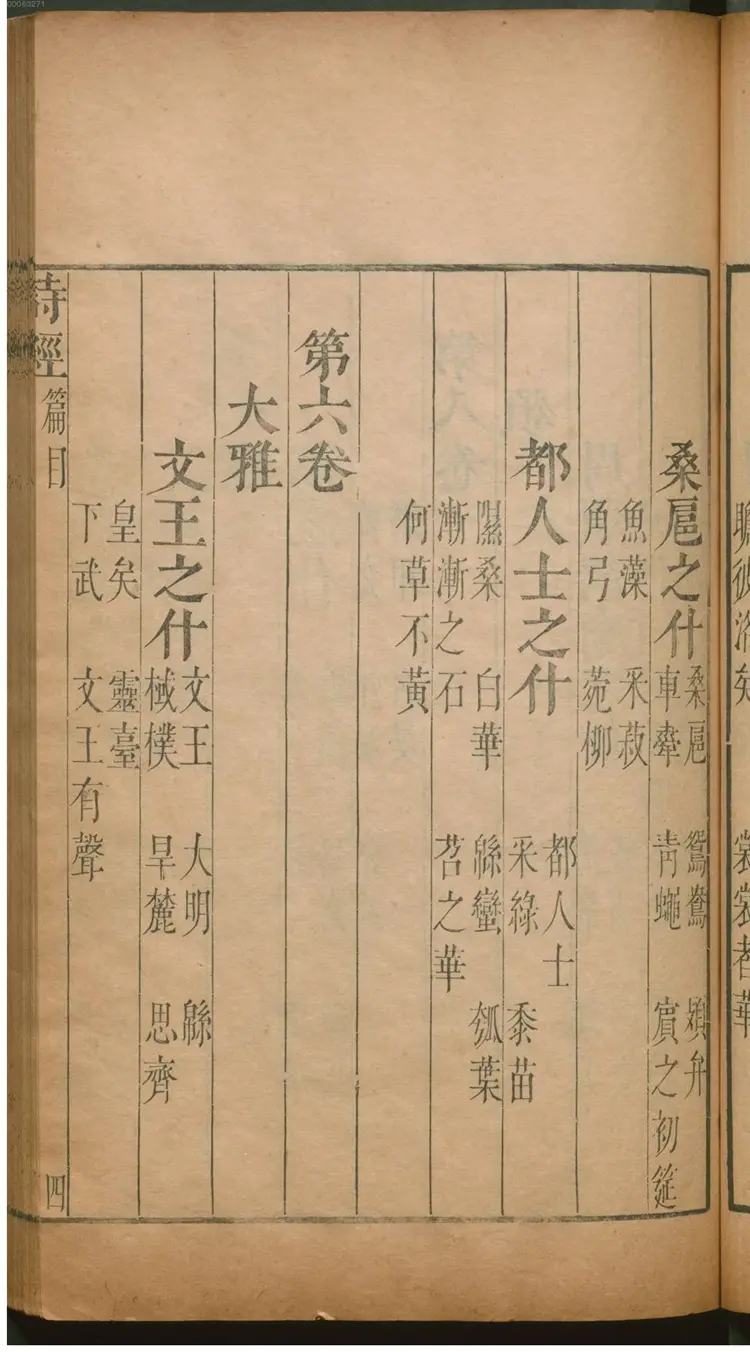 瞻彼洛矣 裳裳者華
桑扈之什 桑扈 鴛鴦 頍弁
車舝 靑蠅 賔之初筵
魚藻 采菽
角弓 菀柳
都人士之什 都人士
采綠 黍苗
隰桑 白華 緜蠻 瓠葉
漸漸之石 苕之華
何草不黃
第六卷
大雅
文王之什 文王 大明 緜
棫樸 旱麓 思齊
皇矣 靈臺
下武 文王有聲
詩經 篇目 四
00063271